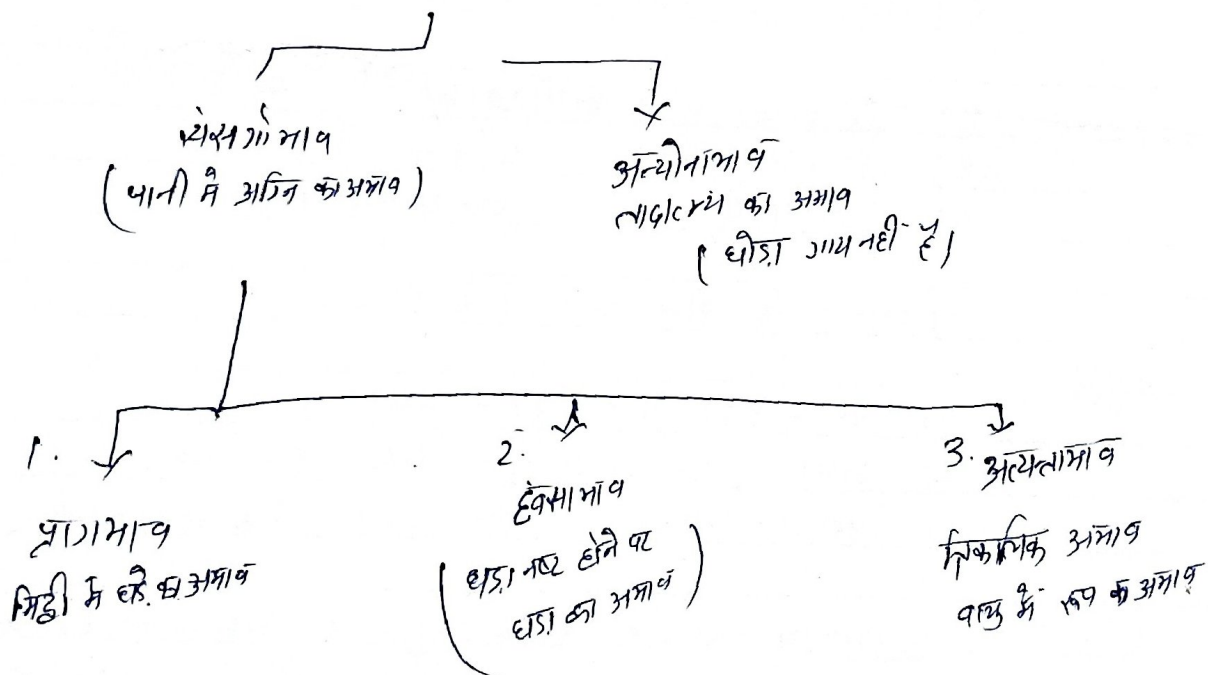 संसर्गाभाव
(पानी में अग्नि का अभाव)
अन्योनाभाव
तादात्म्य का अभाव
(घोड़ा गाय नहीं है)
1.
प्रागभाव
मिट्टी में घड़े का अभाव
2.
ध्वंसाभाव
(घड़ा नष्ट होने पर
घड़ा का अभाव)
3. अत्यन्ताभाव
त्रिकालिक अभाव
वायु में रूप का अभाव